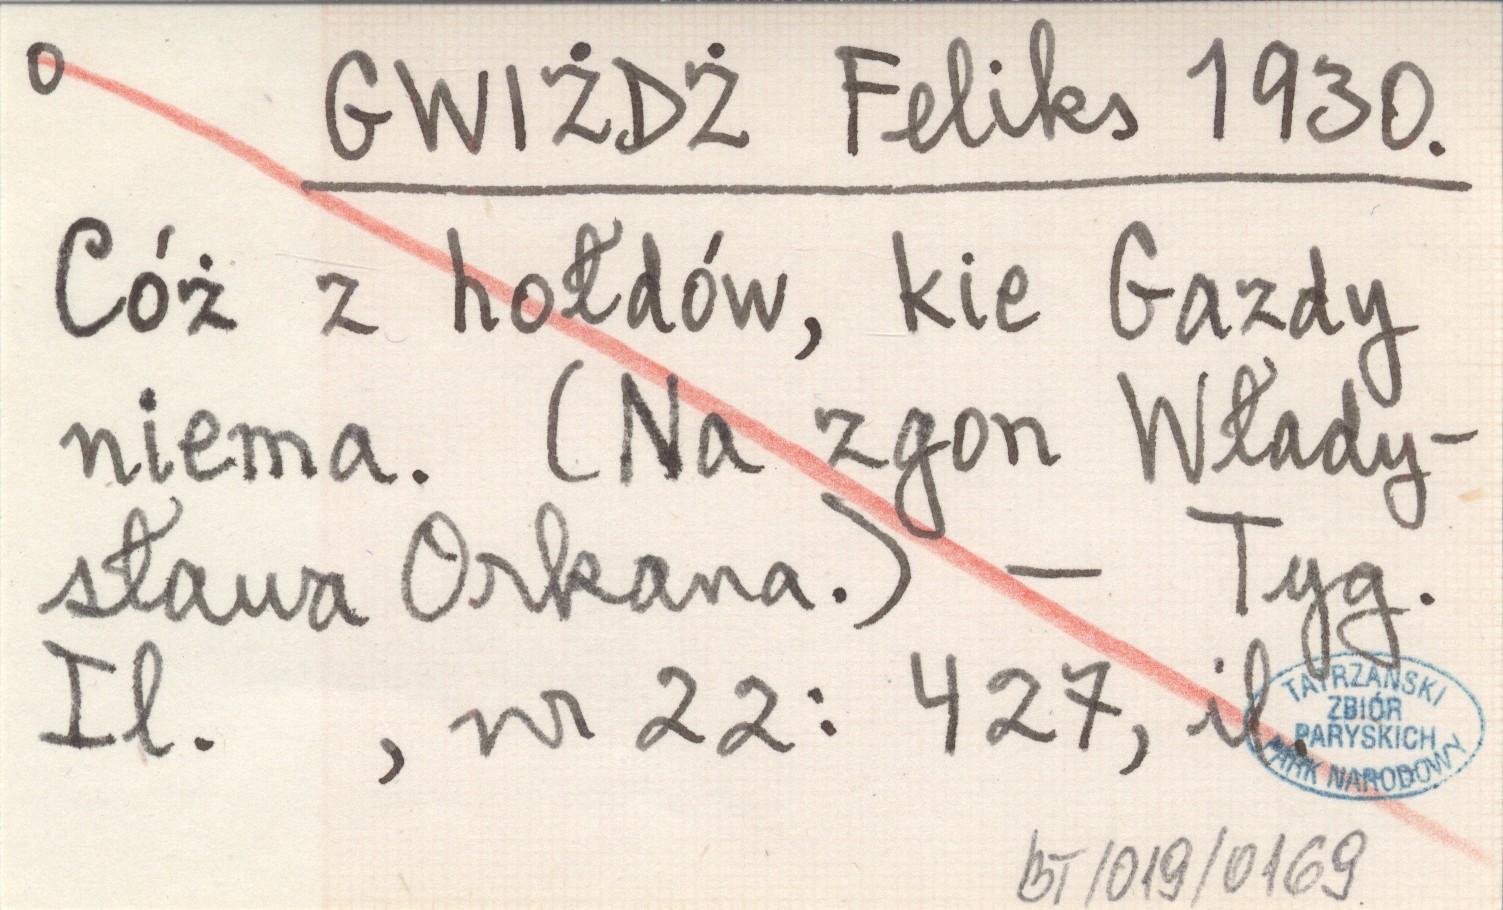 o
GWIŻDŻ Feliks 1930.
Cóż z hołdów, kie Gazdy
niema. (Na zgon Włady-
sława Orkana.) — Tyg.
Il. , nr 22: 427, il.
TATRZAŃSKI
ZBIÓR
PARYSKICH
PARK NARODOWY
BT/019/0169